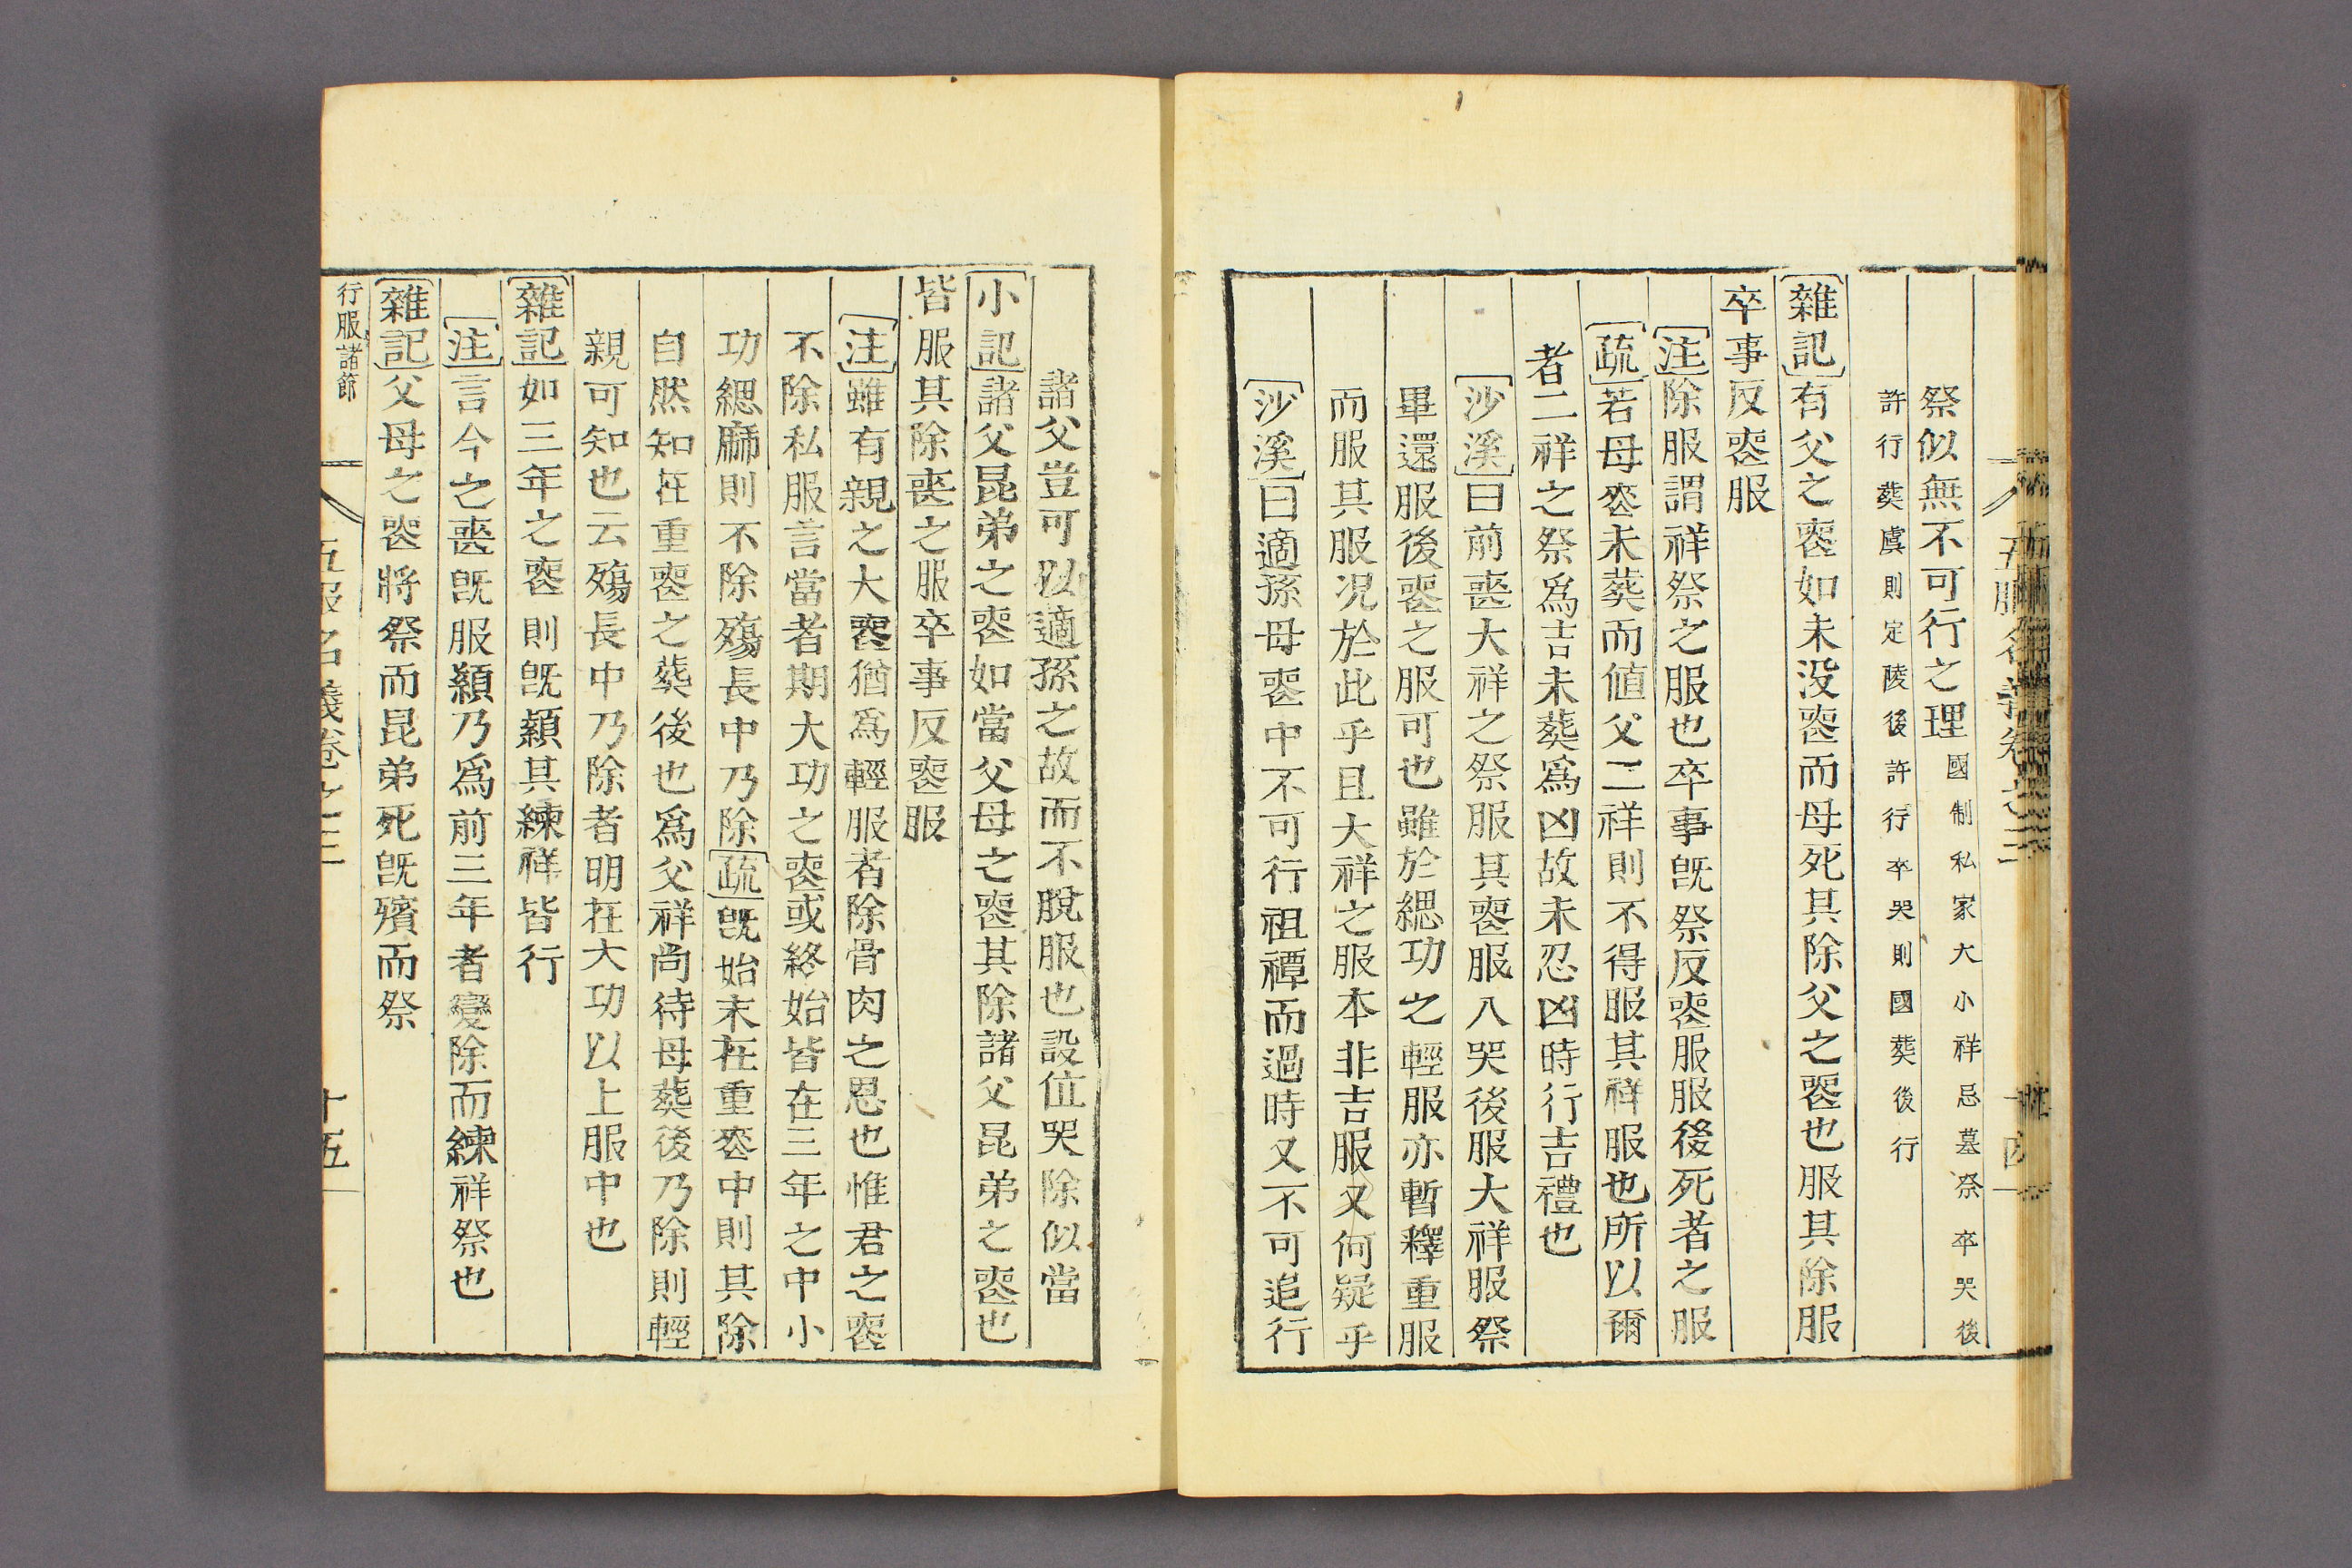 五服名義卷之三
祭似無不可行之理國制私家大小祥忌墓祭卒哭後
許行葬虞則定陵後許行卒哭則國葬後行
雜記有父之喪如未没喪而母死其除父之喪也服其除服
卒事反喪服
注除服謂祥祭之服也卒事旣祭反喪服服後死者之服
疏若母喪未葬而值父二祥則不得服其祥服也所以爾
者二祥之祭爲吉未葬爲凶故未忍凶時行吉禮也
沙溪曰前喪大祥之祭服其喪服入哭後服大祥服祭
畢還服後喪之服可也雖於緦功之輕服亦暫釋重服
而服其服况於此乎且大祥之服本非吉服又何疑乎
沙溪曰適孫母喪中不可行祖禫而過時又不可追行
諸父豈可以適孫之故而不脫服也設位哭除似當
小記諸父昆弟之喪如當父母之喪其除諸父昆弟之喪也
皆服其除喪之服卒事反喪服
注雖有親之大喪猶爲輕服者除骨肉之恩也惟君之喪
不除私服言當者期大功之喪或終始皆在三年之中小
功緦麻則不除殤長中乃除疏旣始末在重喪中則其除
自然知在重喪之葬後也爲父祥尙待母葬後乃除則輕
親可知也云殤長中乃除者明在大功以上服中也
雜記如三年之喪則旣顈其練祥皆行
注言今之喪旣服顈乃爲前三年者變除而練祥祭也
雜記父母之喪將祭而昆弟死旣殯而祭
行服諸節
五服名義卷之三
十五